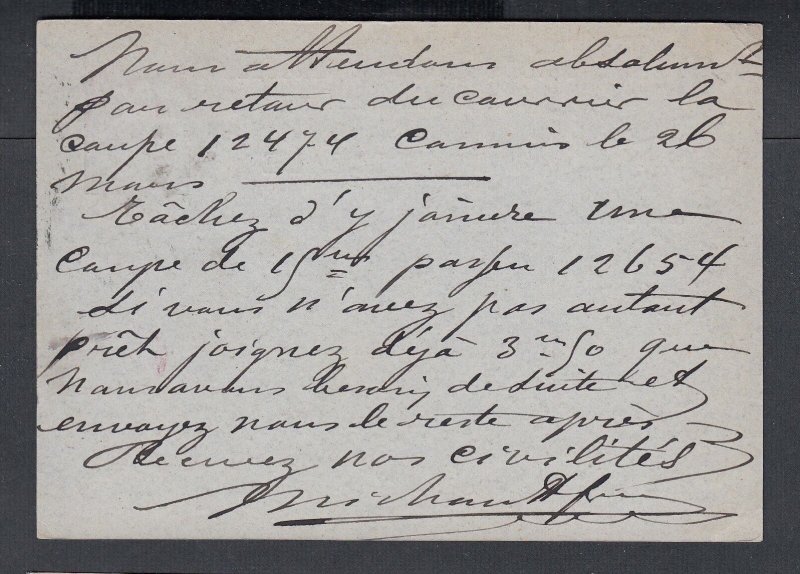 Nous attendons absolument
par retour du courrier la
coupe 12474 Commis le 26
mars
Tâchez d'y joindre une
coupe de 15 m 12654
si vous n'avez pas autant
prêt joignez déjà 3 m 50 que
nous avons besoin de suite et
envoyez nous le reste après
Recevez nos civilités